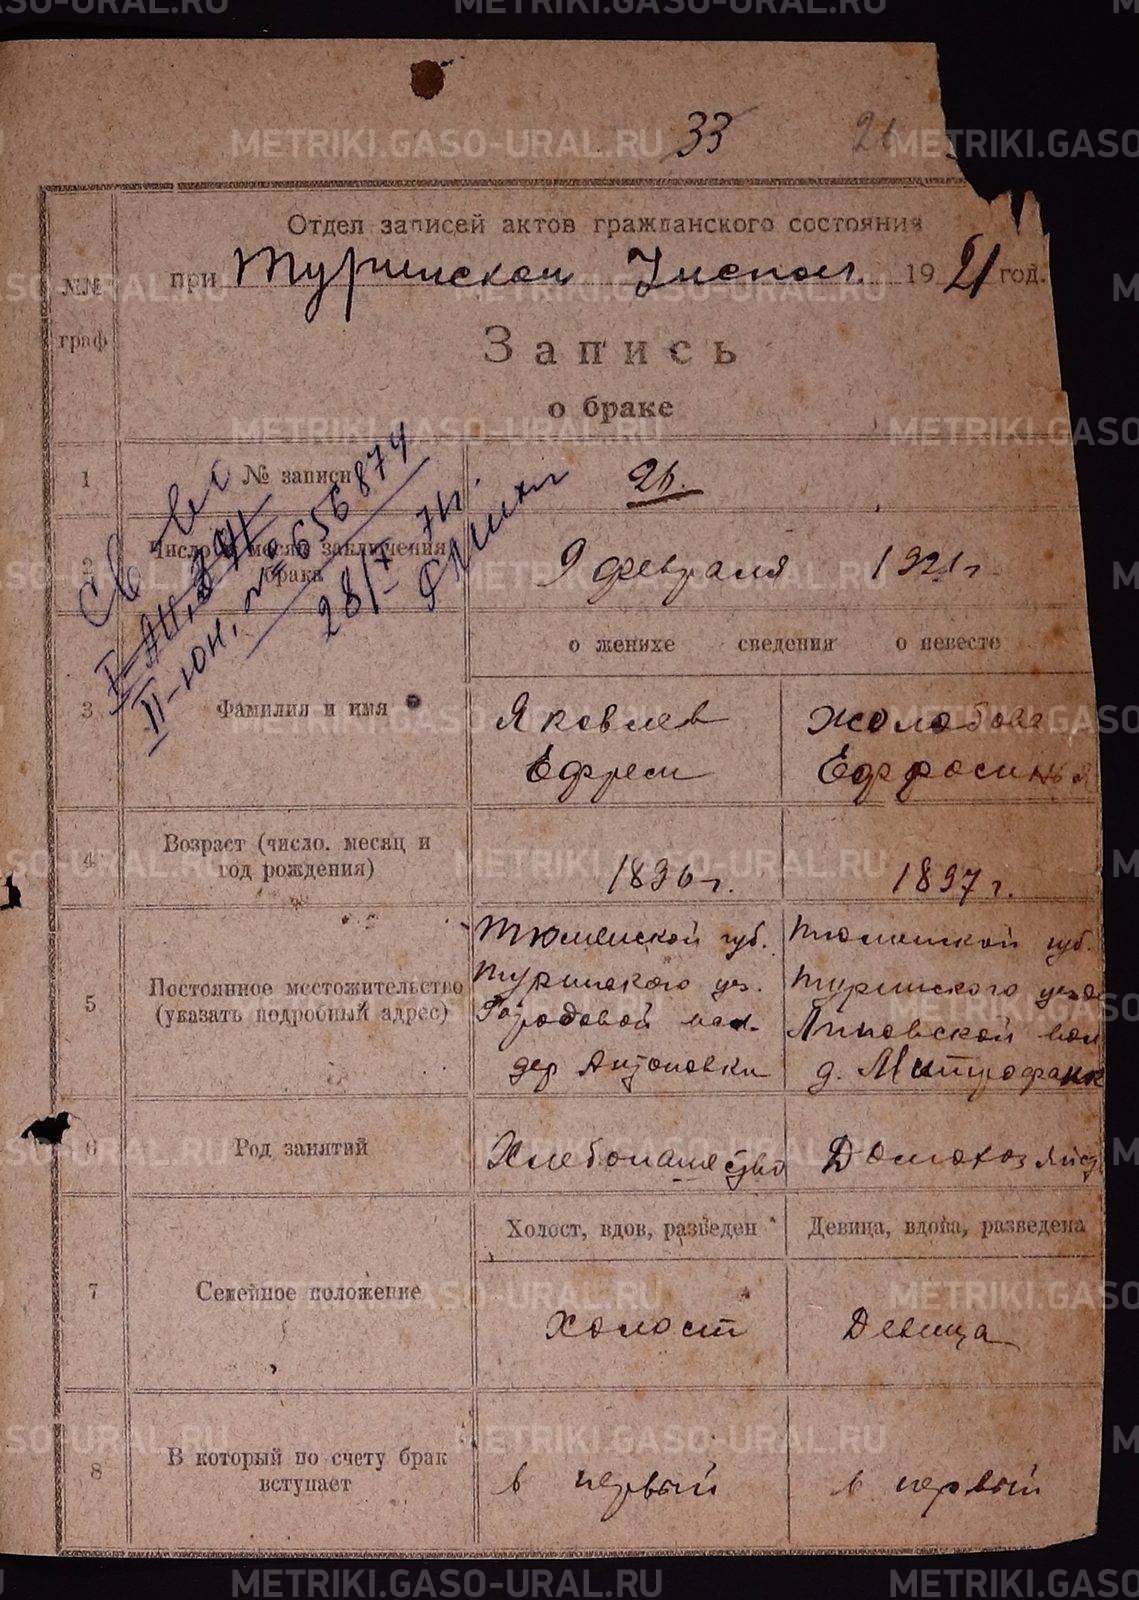 33
26
Отдел записей актов гражданского состояния
при Туринском Исполк. 1921 год.
№№ граф
Запись
о браке
1 № записи 26.
2 Число и месяц заключения брака 9 февраля 1921 г
Св во
II-ЮН, № 656874
28/X-74г.
о женихе сведения о невесте
3 Фамилия и имя
Яковлев Жолобова
Ефрем Ефросинья
4 Возраст (число, месяц и год рождения) 1896 г. 1897 г.
5 Постоянное местожительство (указать подробный адрес)
Тюменской губ. Тюменской губ.
Туринского уез. Туринского уезда
Городовой вол. Липовской вол
дер Антоновки д. Митрофанк
6 Род занятий Хлебопашество Домохозяйст
Холост, вдов, разведен Девица, вдова, разведена
7 Семейное положение Холост Девица
8 В который по счету брак вступает в первый в первый
METRIKI.GASO-URAL.RU